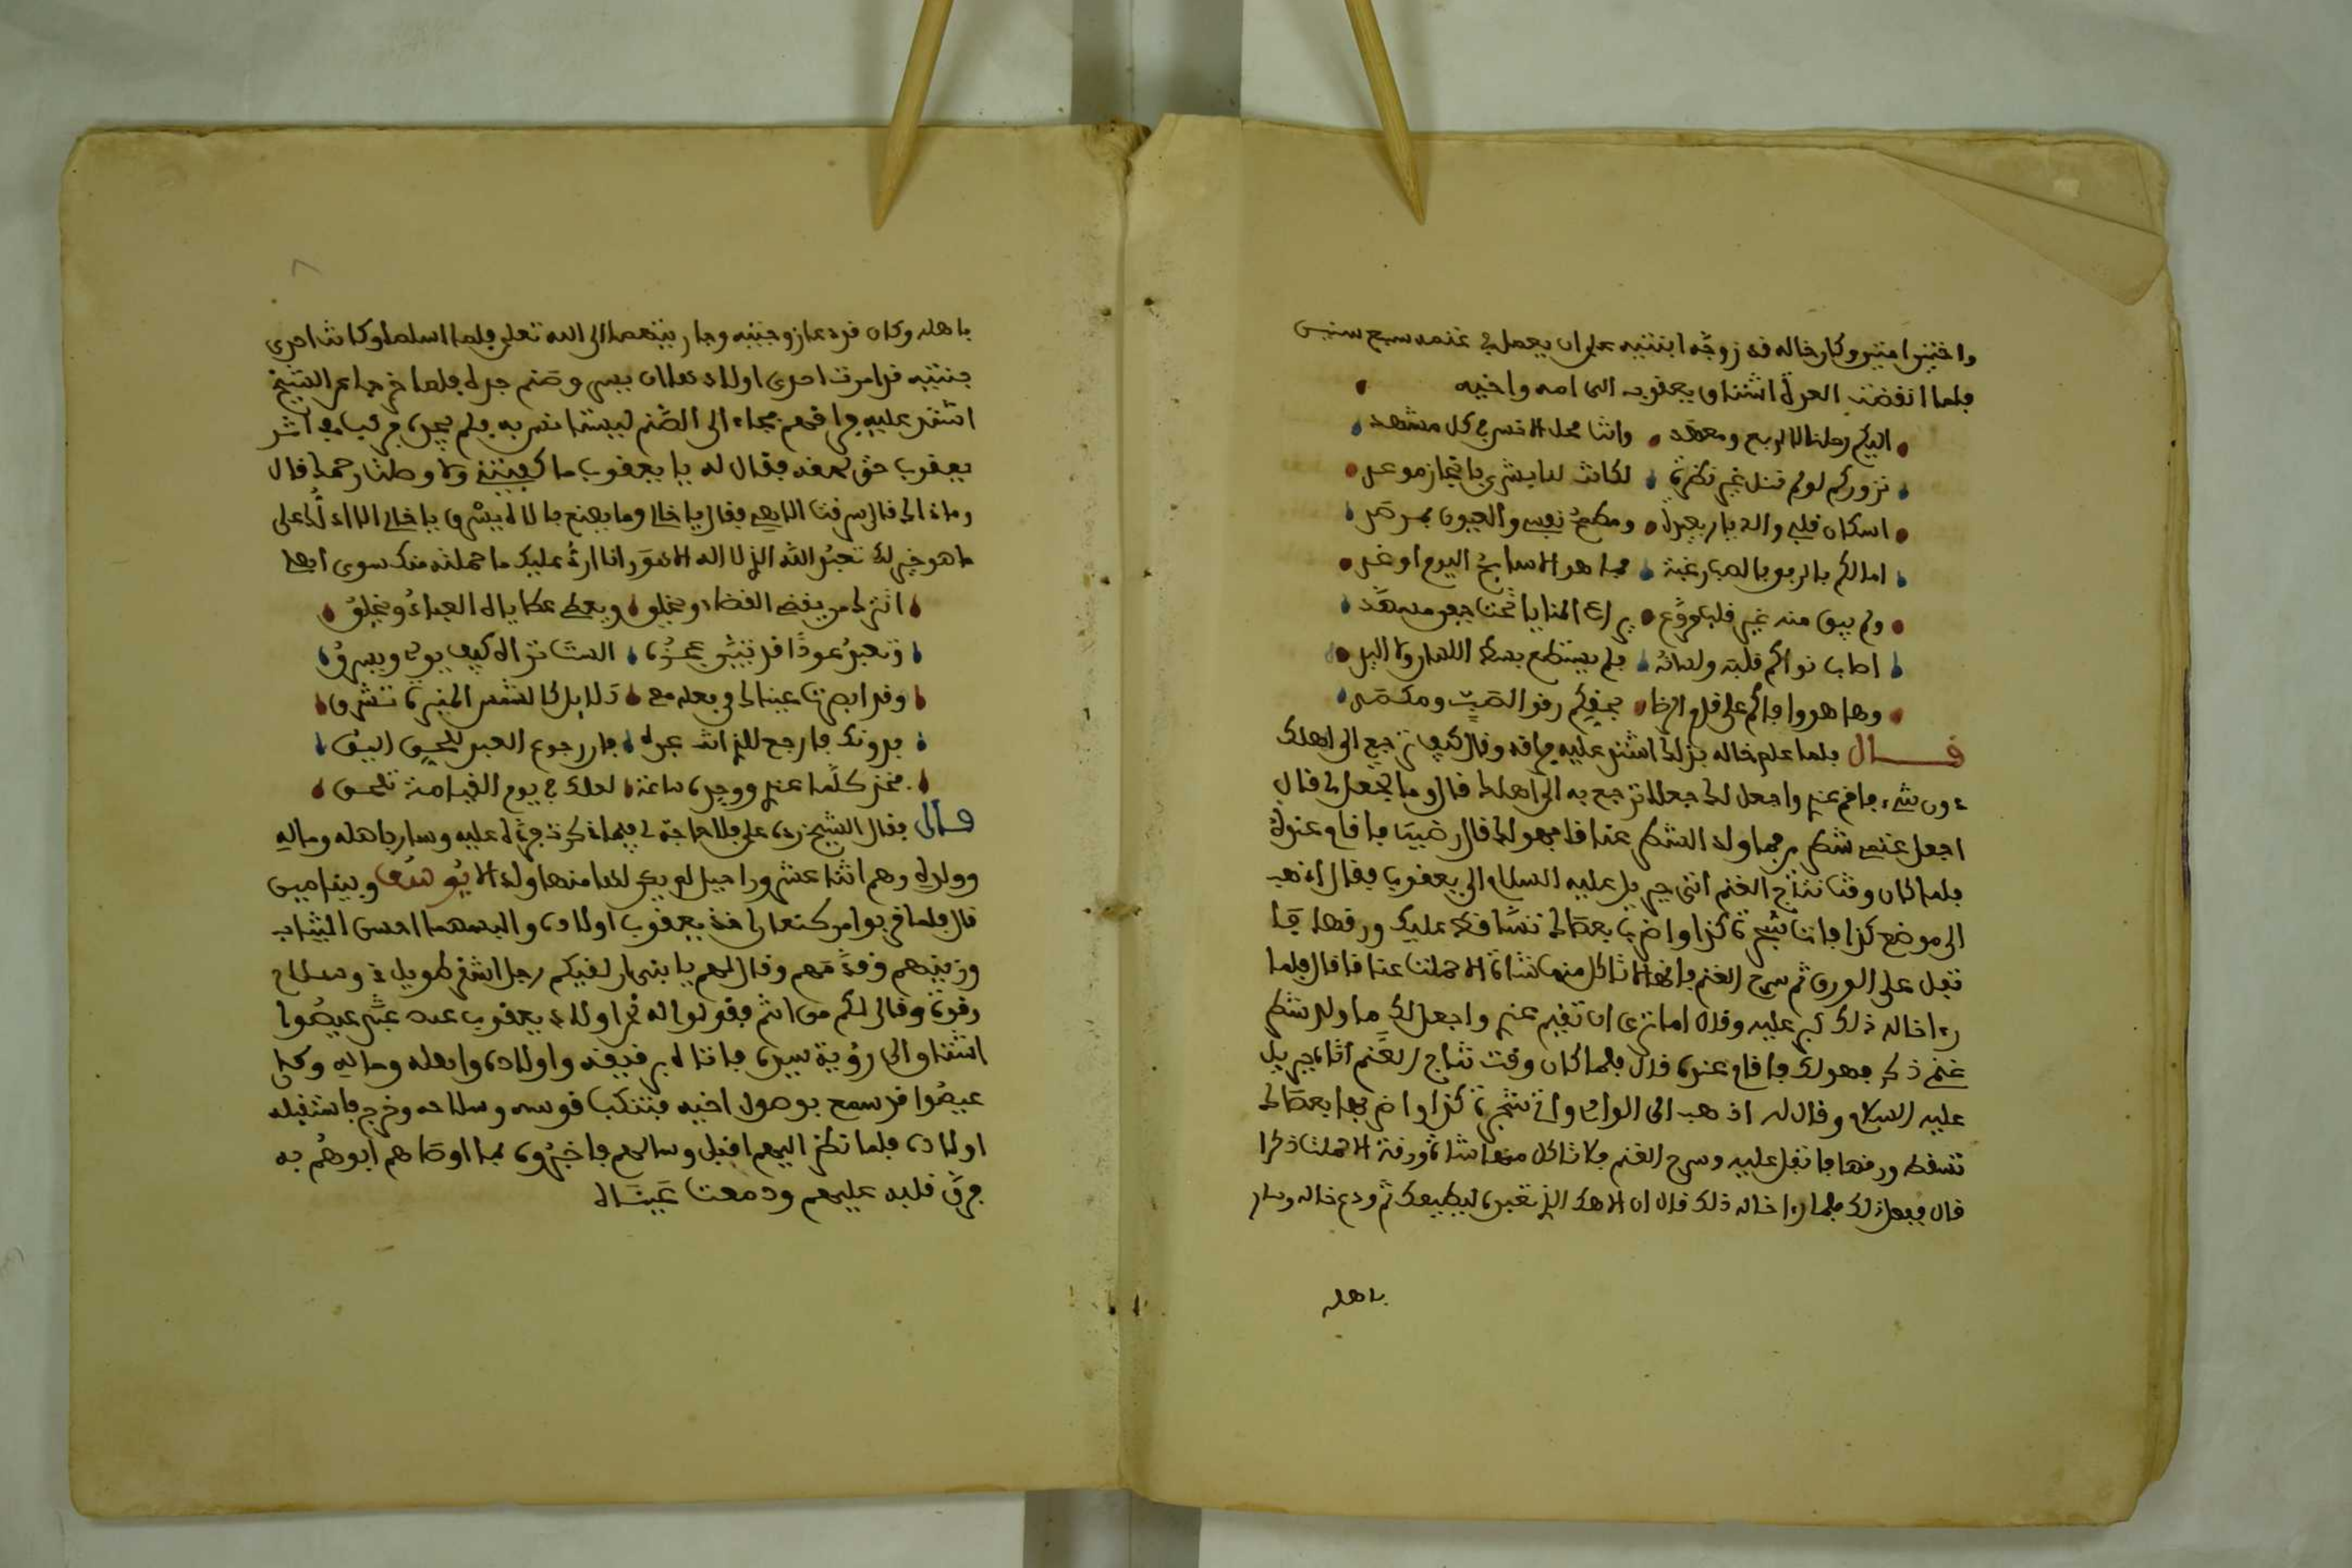 واختين امتين وكان خاله قد زوجه ابنتيه على ان يعمل في غنمه سبع سنين
فلما انقضت العدة اشتاق يعقوب الى امه واخيه
اليكم رحلنا كل ربع ومعهد وانتم محل الانس في كل مشهد
نزوركم لو لم ننل غير نظرة لكانت لنا بشرى بانجاز موعد
اسكان قلبي والديار بعيدة ومطمح نفسي والعيون بمرصد
امالكم بالربع بالصب رغبة فما هو الا سابح اليوم او غد
ولم يبق منه غير قلب مروع يراع المنايا تحت جفن مسهد
اطاب نواكم قلبه ولسانه فلم يستطع بسط اللسان ولا اليد
وها هو وافاكم على قدم الرخا
قال فلما علم خاله بذلك اشتد عليه فراقه وقال كيف ترجع الى اهلك
دون شيء فاقم عندي واجعل لك جعلا ترجع به الى اهلك قال وما تجعل لي قال
اجعل غنمي شطرين فما ولد الشطر عناقا فهو لك قال رضيت فاقام عنده
فلما كان وقت نتاج الغنم اتى جبريل عليه السلام الى يعقوب فقال اذهب
الى موضع كذا فات شجرة كذا واضرب بعصاك تتساقط عليك ورقها فما
تقبل على الورق ثم سرح الغنم فانها لا تاكل منها شاة الا حملت عناقا قال فلما
رءا خاله ذلك كبر عليه وقال اما ترى ان تقيم عندي واجعل لك ما ولد شطر
غنمي ذكر فهو لك فاقام عنده قال فلما كان وقت نتاج الغنم اتاه جبريل
عليه السلام وقال له اذهب الى الوادي وات شجرة كذا واضربها بعصاك
تسقط ورقها فاتقبل عليه وسرح الغنم فلا تاكل منها شاة ورقة الا حملت ذكرا
قال ففعل ذلك فلما رءا خاله ذلك قال ان الاهك الذي تعبده ليطيعك ثم ودع خاله وسار
باهله
باهله وكان قد دعا زوجتيه وجاريتيهما الى الله تعلى فلما اسلما وكانت احدى
اشتد عليه فراقهم فجاء الى الصنم ليستانس به فلم يجده فركب في اثر
يعقوب حتى لحقه فقال له يا يعقوب ما كفيتني ولا وصلت رحمك قال
وماذاك قال سرقت الاهي فقال يا خالي وما يصنع باله يسرق يا خالي الا ادلك على
ما هو خير لك تعبد الله الذي لا اله الا هو وانا ارد عليك ما حملته منك سوى
اتترك من يقضي القضاء ويخلق ويعطي عطاياه العباد ويخلق
وتعبد عودا قد تبين عجزه الست تراه كيف يوتى ويسرق
وقد ابصرت عيناك في بعد مدمع دلايل كالشمس المنيرة تشرق
فدونك فارجع للذي انت عبده فان رجوع العبد للحق اليق
فخذ كلما عندي ووحده ساعة لعلك في يوم القيامة تلحق
قال فقال الشيخ زدت علي فلا حاجة لي فيما ذكرت فتركه عليه وسار باهله وماله
وولده وهم اثنا عشر وراحيل لم يكن لها منها ولد الا يوسف وبنيامين
قال فلما قربوا من كنعان اخذ يعقوب اولاده والبسهما احسن الثياب
وزينهم وقدمهم وقال لهم يا بني ان لقيكم رجل اشقر طويل ذو سلاح
وقوة وقال لكم من انتم فقولوا له نحن اولاد يعقوب عبد عيصوا
اشتاق الى رؤية سيده فاتاه برقيقه واولاده واهله وماله وكان
عيصوا قد سمع بوصول اخيه فتنكب قوسه وسلاحه وخرج فاستقبله
اولاده فلما نظر اليهم اقبل وسالهم فاخبروه بما اوصاهم ابوهم به
فرق قلبه عليهم ودمعت عيناه